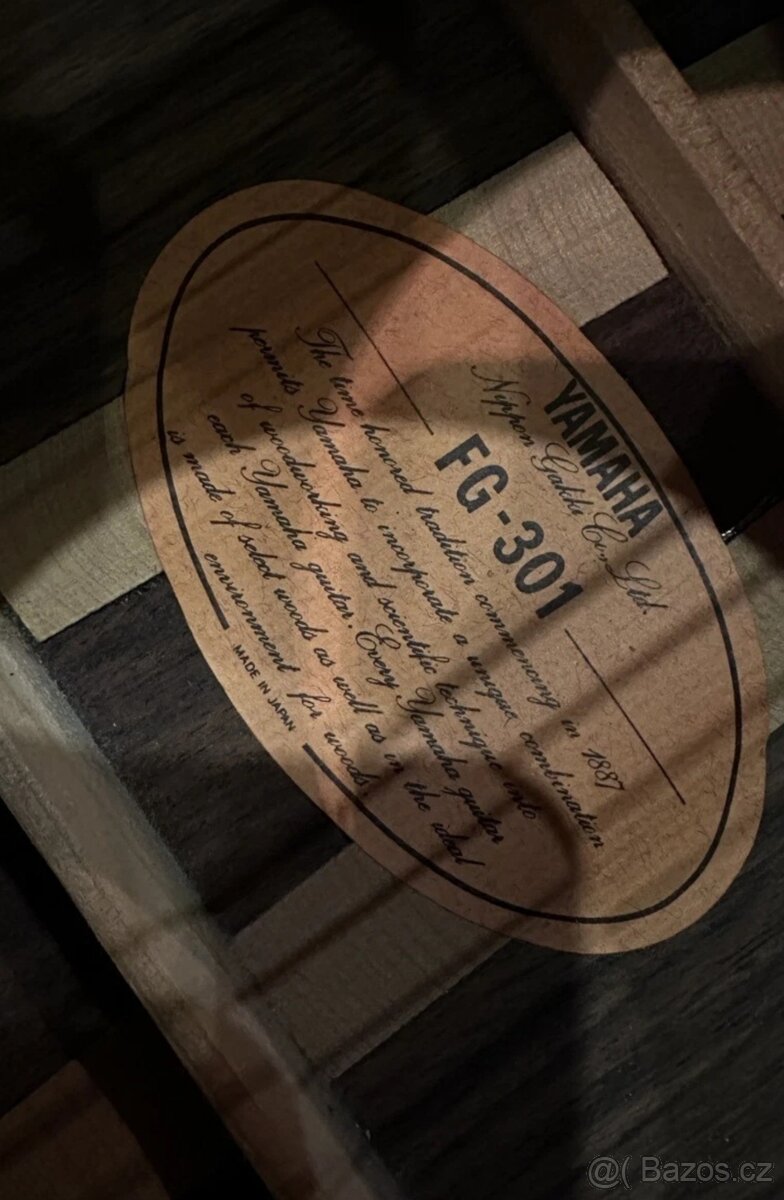 YAMAHA
Nippon Gakki Co., Ltd.
FG-301
The time honored tradition commencing in 1887
permits Yamaha to incorporate a unique combination
of woodworking and scientific technique into
each Yamaha guitar. Every Yamaha guitar
is made of select woods as well as in the ideal
environment for woods.
MADE IN JAPAN
@( Bazoš.cz